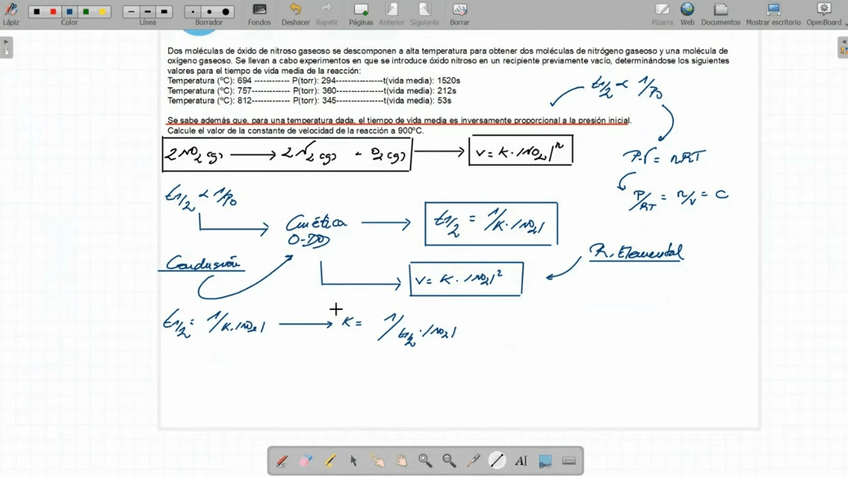 Lápiz
Color
Línea
Borrador
Fondos
Deshacer
Repetir
Páginas
Anterior
Siguiente
Borrar
Pizarra
Web
Documentos
Mostrar escritorio
OpenBoard
Dos moléculas de óxido de nitroso gaseoso se descomponen a alta temperatura para obtener dos moléculas de nitrógeno gaseoso y una molécula de
oxígeno gaseoso. Se llevan a cabo experimentos en que se introduce óxido nitroso en un recipiente previamente vacío, determinándose los siguientes
valores para el tiempo de vida media de la reacción:
Temperatura (ºC): 694 ------------ P(torr): 294----------------t(vida media): 1520s
Temperatura (ºC): 757------------- P(torr): 360----------------t(vida media): 212s
Temperatura (ºC): 812------------- P(torr): 345----------------t(vida media): 53s
t1/2 ∝ 1/P0
Se sabe además que, para una temperatura dada, el tiempo de vida media es inversamente proporcional a la presión inicial.
Calcule el valor de la constante de velocidad de la reacción a 900ºC.
2NO2(g) → 2N2(g) + O2(g) → v = K · |NO2|^n
P·V = nRT
P/RT = n/V = C
t1/2 ∝ 1/P0
Cinética → t1/2 = 1/K·|NO2|
Conclusión
v = K · |NO2|^2
R. Elemental
t1/2 = 1/K·|NO2| → K = 1/t1/2 · |NO2|